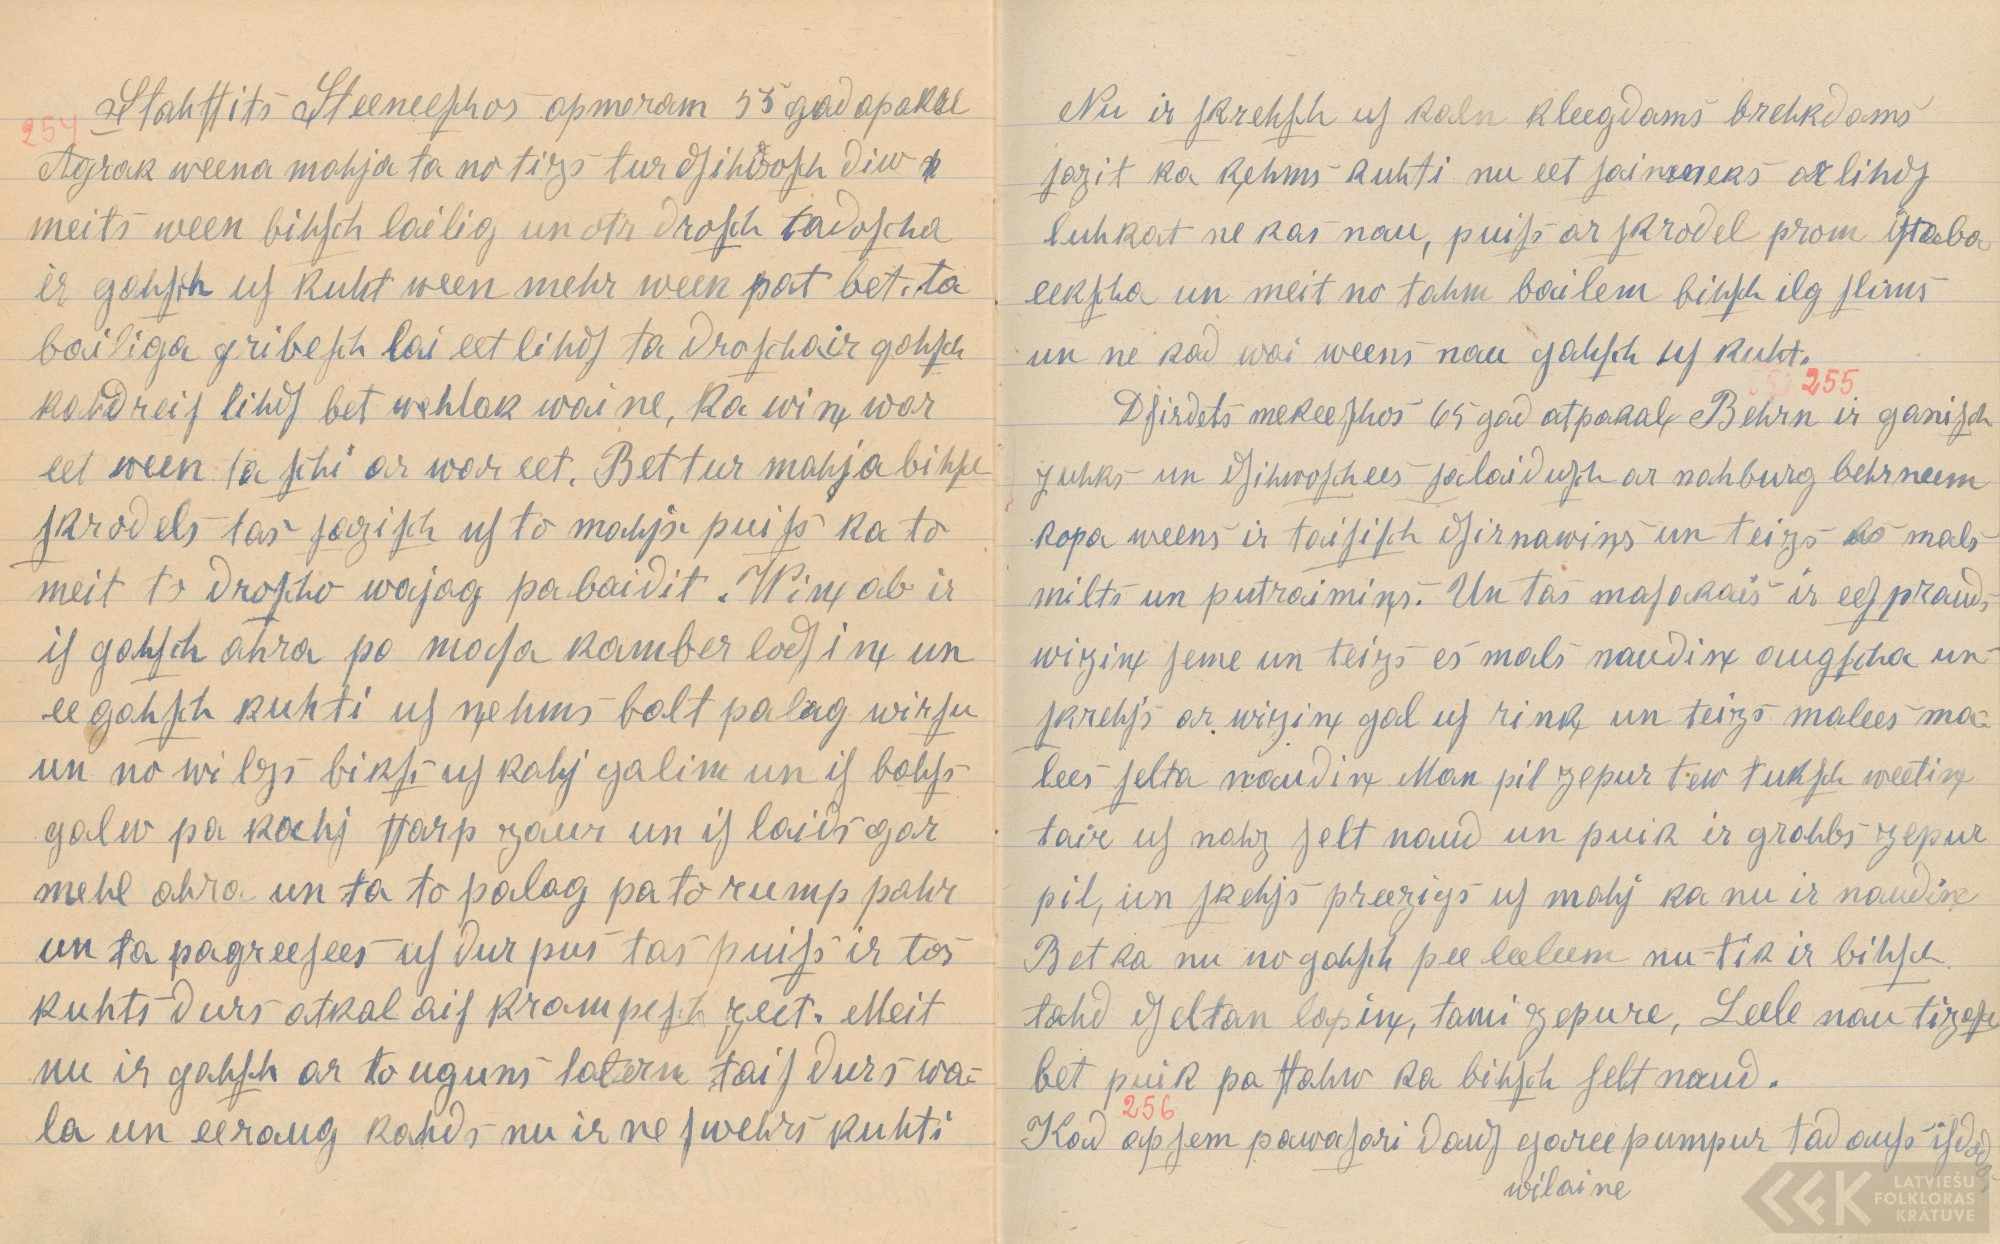 Stahstits Steeneeschos apmeram 55 gad apakal
254
Agrak weena mahja ta no tizs tur dsihwosch diw
meits ween bihsch lailig un otr drosch tadoscha
ir gahsch us kuht ween mehr ween pat bet ta
bailiga gribesch lai eet lihds ta droscha ir gahsch
kahdreis lihds bet wehlak wai ne, ka winx war
eet ween ta schi ar war eet. Bet tur mahja bihsch
skrodels tas sazisch us to mahjs puiss ka to
meit to droscho wajag pabaidit. Winx ab ir
is gahsch ahra pa masa kamber lodsinx un
ee gahsch kuhti us nxehms balt palag wirsu
un no wilzs bikss us kahj galim un is bahs
galw pa kahj starp zaur un is laids gar
mehl ahra un ta to palag pa to rump pahr
un ta pagreesees us dur pus tas puiss ir tos
kuhts durs atkal ais krampesch zeet. Meit
nu ir gahsch ar to uguns latern tais durs wa-
la un eeraug kahds nu ir ne swehrs kuhti
Nu ir skrehsch us kaln kleegdams brehkdams
sazit ka kxehms kuhti nu eet saimneeks ar lihds
luhkat ne kas nau, puiss ar skrodel prom istaba
eekscha un meit no tahm bailem bihsch ilg slims
un ne kad wai weens nau gahsch us kuht.
255
Dsirdets mekeeschos 65 gad atpakalx Behrn ir ganisch
zuhks un dsihwoschees salaidusch ar nahburg behrneem
kopa weens ir taisisch dsirnawinxs un teizs ka mals
milts un putraiminxs. Un tas masakais ir eespraud
wizinx seme un teizs es mals naudinx augscha un
skrehjs ar wizinx gal us rinkx un teizs malees ma-
lees selta naudinx Man pil zepur tew tuksch weetinx
taix us nahz selt naud un puik ir grahbs zepur
pil, un skehjs preezigs us mahj ka nu ir naudinx
Bet ka nu no gahsch pee leeleem nu tik ir bihsch
tahd dseltan lapinx, tami zepure, Leele nau tizosch
bet puik pa stahw ka bihsch selt naud.
256
Kad apsem pawasari daudz garee pumpur tad auss isdod
wilaine
LATVIEŠU
FOLKLORAS
KRĀTUVE